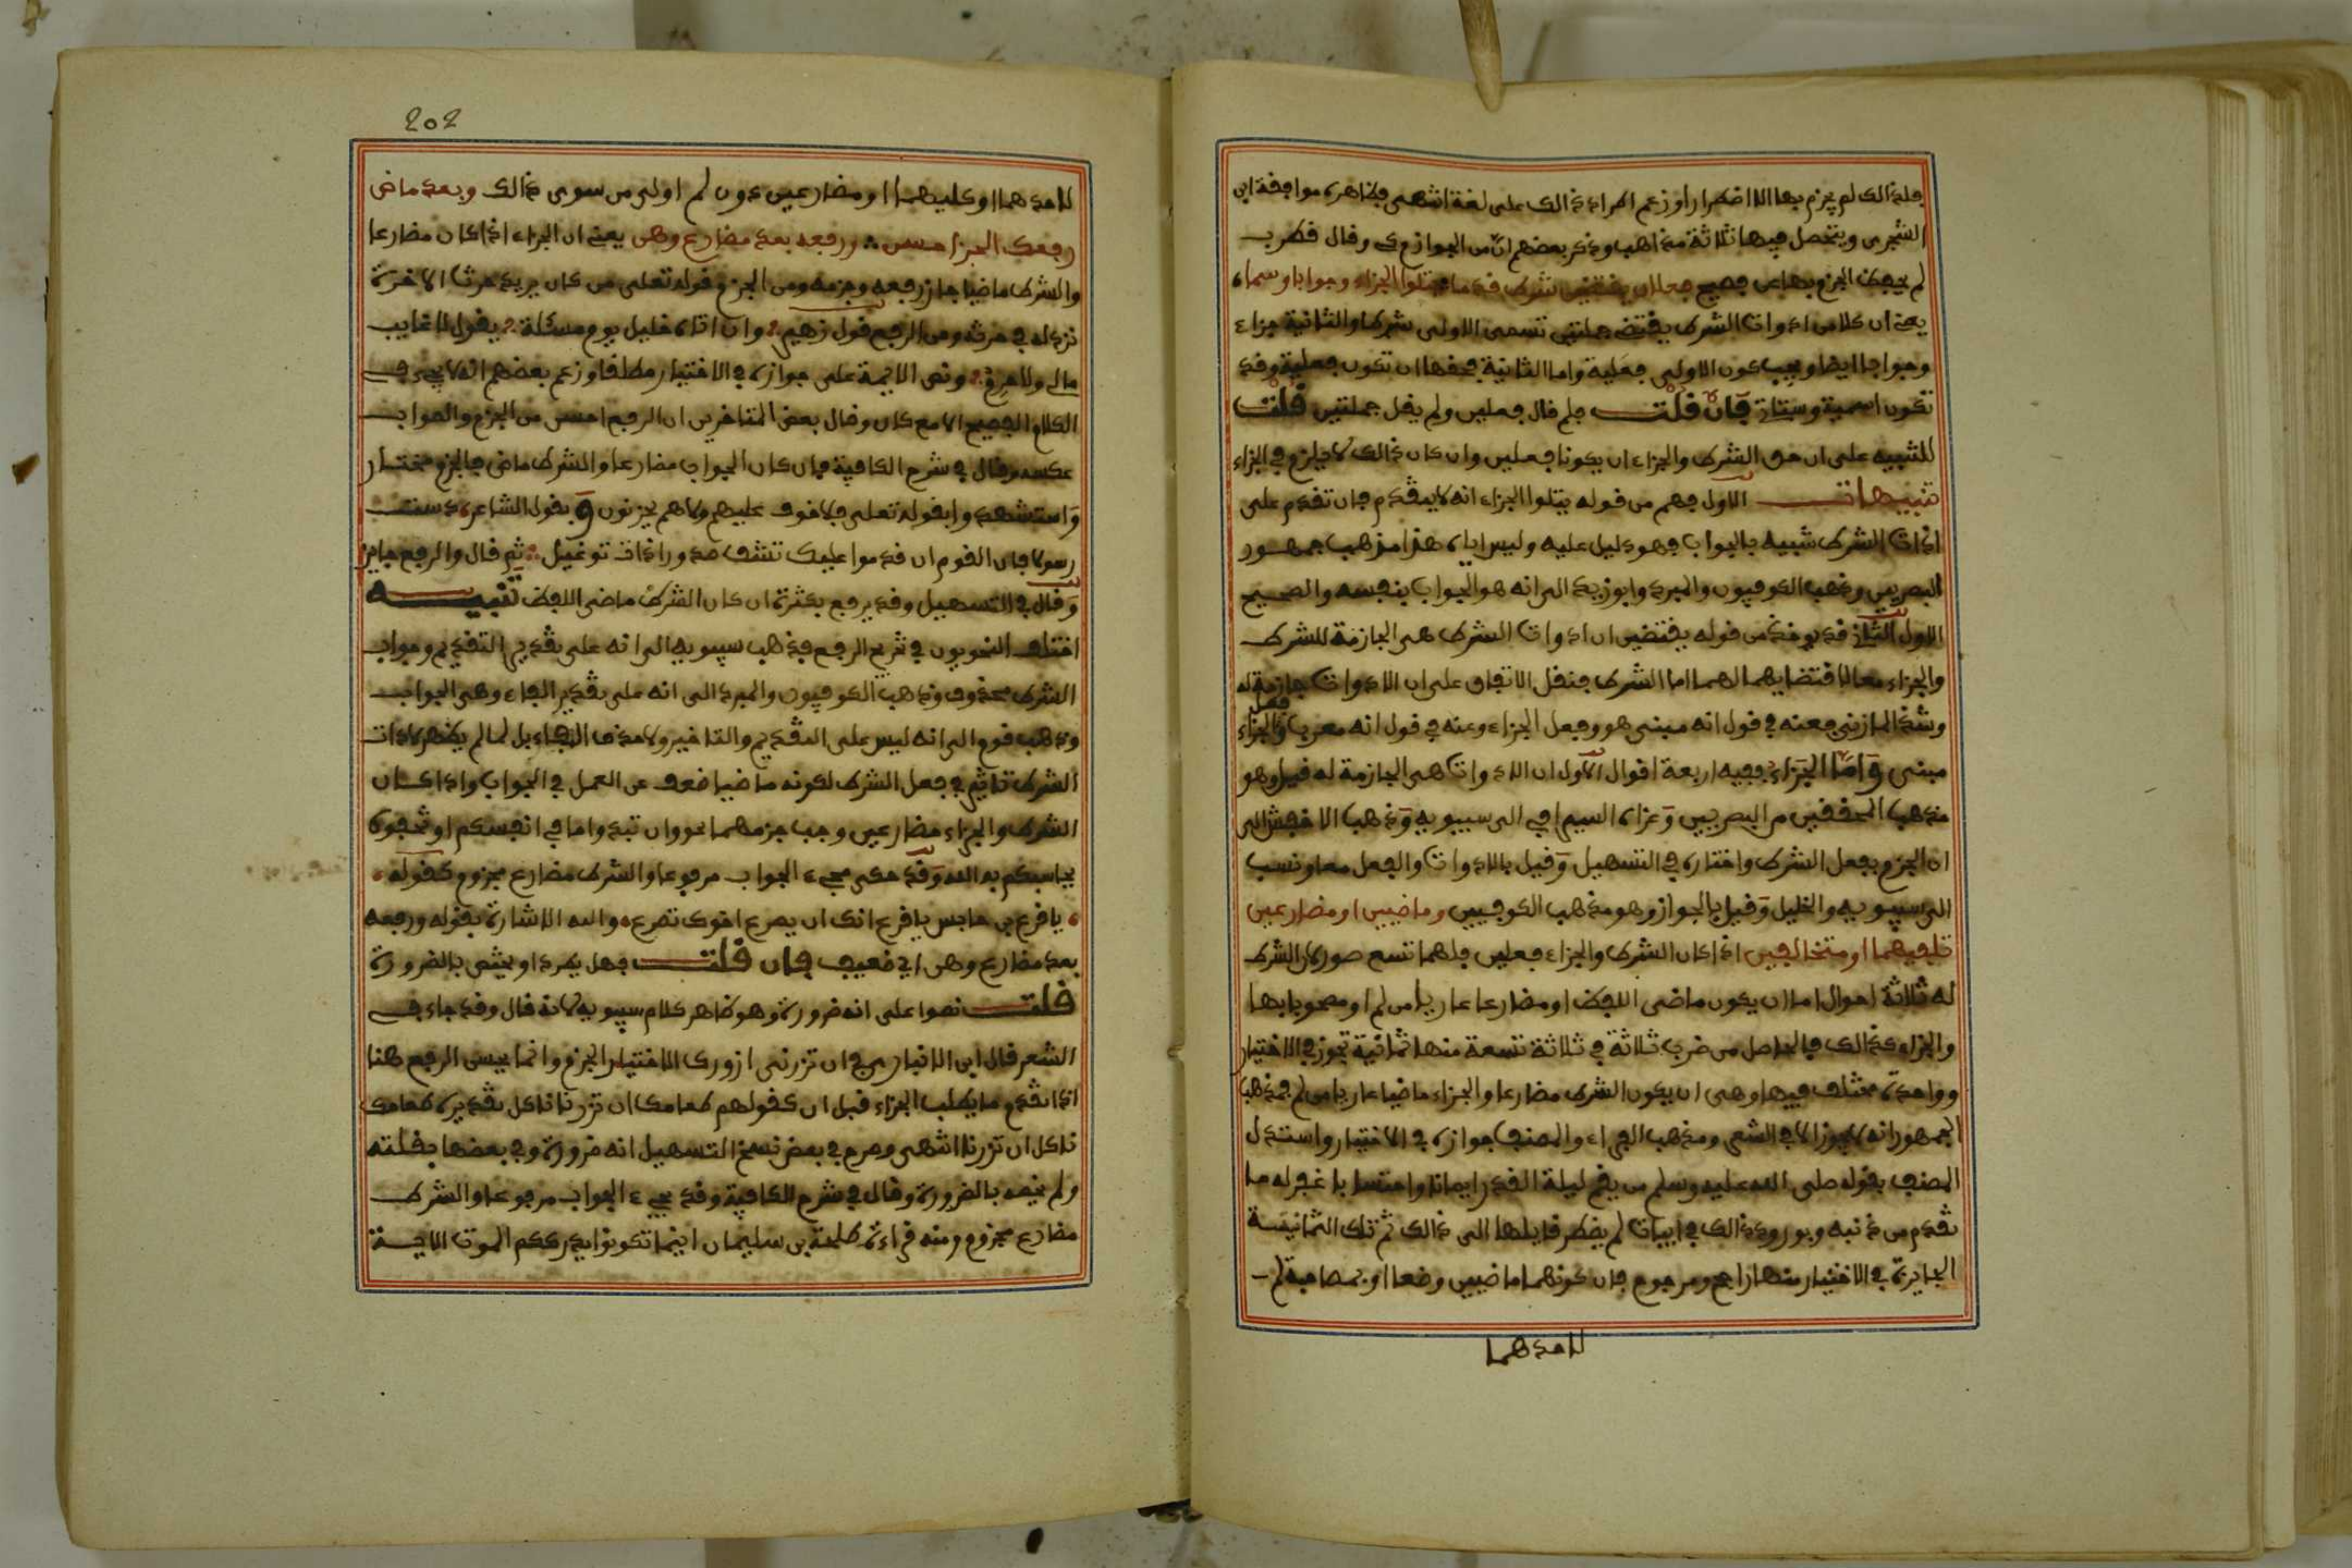 فلذالك لم يجزم بها الا اضطرارا وزعم المرادي ذالك على لغة انتهى فظاهره موافقة ابن
الشجري ويتحصل فيها ثلاثة مذاهب وذكر بعضهم ان من الجوازم كي وقال قطرب
لم يحفظ الجزم بها عن فصيح فعلين يقتضين شرط قدما يتلوا الجزاء وجوابا وسماء
يعنى ان كلا من ادوات الشرط يقتضى جملتين تسمى الاولى شرطا والثانية جزاء
وجوابا ايضا ويجب كون الاولى فعلية واما الثانية فحقها ان تكون فعلية وقد
تكون اسمية وستاتي فان قلت فلم قال فعلين ولم يقل جملتين قلت
للتنبيه على ان حق الشرط والجزاء ان يكونا فعلين وان كان ذالك لا يلزم في الجزاء
تنبيهات الاول فهم من قوله يتلوا الجزاء انه لا يتقدم فان تقدم على
اداة الشرط شبيه بالجواب فهو دليل عليه وليس اياه هذا مذهب جمهور
البصريين وذهب الكوفيون والمبرد وابو زيد الى انه هو الجواب بنفسه والصحيح
الاول الثاني قد يوخذ من قوله يقتضين ان ادوات الشرط هى الجازمة للشرط
والجزاء معا لاقتضايهما لهما اما الشرط فنقل الاتفاق على ان الادوات جازمة له
وشذ المازني فعنه في قول انه مبنى هو وفعل الجزاء وعنه في قول انه معرب وفعل الجزاء
مبنى واما الجزاء ففيه اربعة اقوال الاول ان الادوات هى الجازمة له قيل وهو
مذهب المحققين من البصريين وعزاه السيرافي الى سيبويه وذهب الاخفش الى
ان الجزم بفعل الشرط واختاره في التسهيل وقيل بالادوات والفعل معا ونسب
الى سيبويه والخليل وقيل بالجوار وهو مذهب الكوفيين وماضيين او مضارعين
تلفيهما او متخالفين اذا كان الشرط والجزاء فعلين فلهما تسع صور لان الشرط
له ثلاثة احوال اما ان يكون ماضى اللفظ او مضارعا عاريا من لم او مصحوبا بها
والجزاء كذالك فالحاصل من ضرب ثلاثة في ثلاثة تسعة منها ثمانية تجوز في الاختيار
وواحدة مختلف فيها وهى ان يكون الشرط مضارعا والجزاء ماضيا عاريا من لم فمذهب
الجمهور انه لا يجوز الا في الشعر ومذهب الفراء والمصنف جوازه في الاختيار واستدل
المصنف بقوله صلى الله عليه وسلم من يقم ليلة القدر ايمانا واحتسابا غفر له ما
تقدم من ذنبه وبورود ذالك في ابيات لم يضطر قايلها الى ذالك ثم تلك الثمانية
الجايزة في الاختيار منها راجح ومرجوح فان كونهما ماضيين وضعا او بمصاحبة لم
لاحدهما
202
لاحدهما او كليهما او مضارعين دون لم اولى من سوى ذالك وبعد ماض
رفعك الجزا حسن ورفعه بعد مضارع وهن يعنى ان الجزاء اذا كان مضارعا
والشرط ماضيا جاز رفعه وجزمه ومن الجزم قوله تعلى من كان يريد حرث الاخرة
نزد له في حرثه ومن الرفع قول زهير وان اتاه خليل يوم مسئلة يقول لا غايب
مالى ولا حرم ونص الايمة على جوازه في الاختيار مطلقا وزعم بعضهم انه لا يجيء في
الكلام الفصيح الا مع كان وقال بعض المتاخرين ان الرفع احسن من الجزم والصواب
عكسه وقال في شرح الكافية فان كان الجواب مضارعا والشرط ماض فالجزم مختار
واستشهدوا بقوله تعلى فلا خوف عليهم ولا هم يحزنون وبقول الشاعر دست
رسولا فان القوم ان قدموا عليك تشف صدورا ذات توغيل ثم قال والرفع جايز
وقال في التسهيل وقد يرفع بكثرة ان كان الشرط ماضى اللفظ تنبيه
اختلف النحويون في تخريج الرفع فذهب سيبويه الى انه على تقدير التقديم وجواب
الشرط محذوف وذهب الكوفيون والمبرد الى انه على تقدير الفاء وهى الجواب
وذهب قوم الى انه ليس على التقديم والتاخير ولا حذف الفاء بل لما لم يظهر لادات
الشرط تاثير في فعل الشرط لكونه ماضيا ضعف عن العمل في الجواب واذا كان
الشرط والجزاء مضارعين وجب جزمهما نحو وان تبدوا ما في انفسكم او تخفوه
يحاسبكم به الله وقد حكى مجيء الجواب مرفوعا والشرط مضارع مجزوم كقوله
يا اقرع بن حابس يا اقرع انك ان يصرع اخوك تصرع والله الاشارة بقوله ورفعه
بعد مضارع وهن اي ضعيف فان قلت فهل يطرد او يختص بالضرورة
قلت نصوا على انه ضرورة وهو ظاهر كلام سيبويه لانه قال وقد جاء في
الشعر قال ابن الانباري في ان تزرنى ازورك الاختيار الجزم وانما يحسن الرفع هنا
اذا تقدم ما يطلب الجزاء قبل ان كقولهم طعامك ان تزرنا ناكل تقديره طعامك
ناكل ان تزرنا انتهى وصرح في بعض نسخ التسهيل انه ضرورة وفي بعضها بقلته
ولم يخصه بالضرورة وقال في شرح الكافية وقد يجيء الجواب مرفوعا والشرط
مضارع مجزوم ومنه قراءة طلحة بن سليمان اينما تكونوا يدرككم الموت الاية